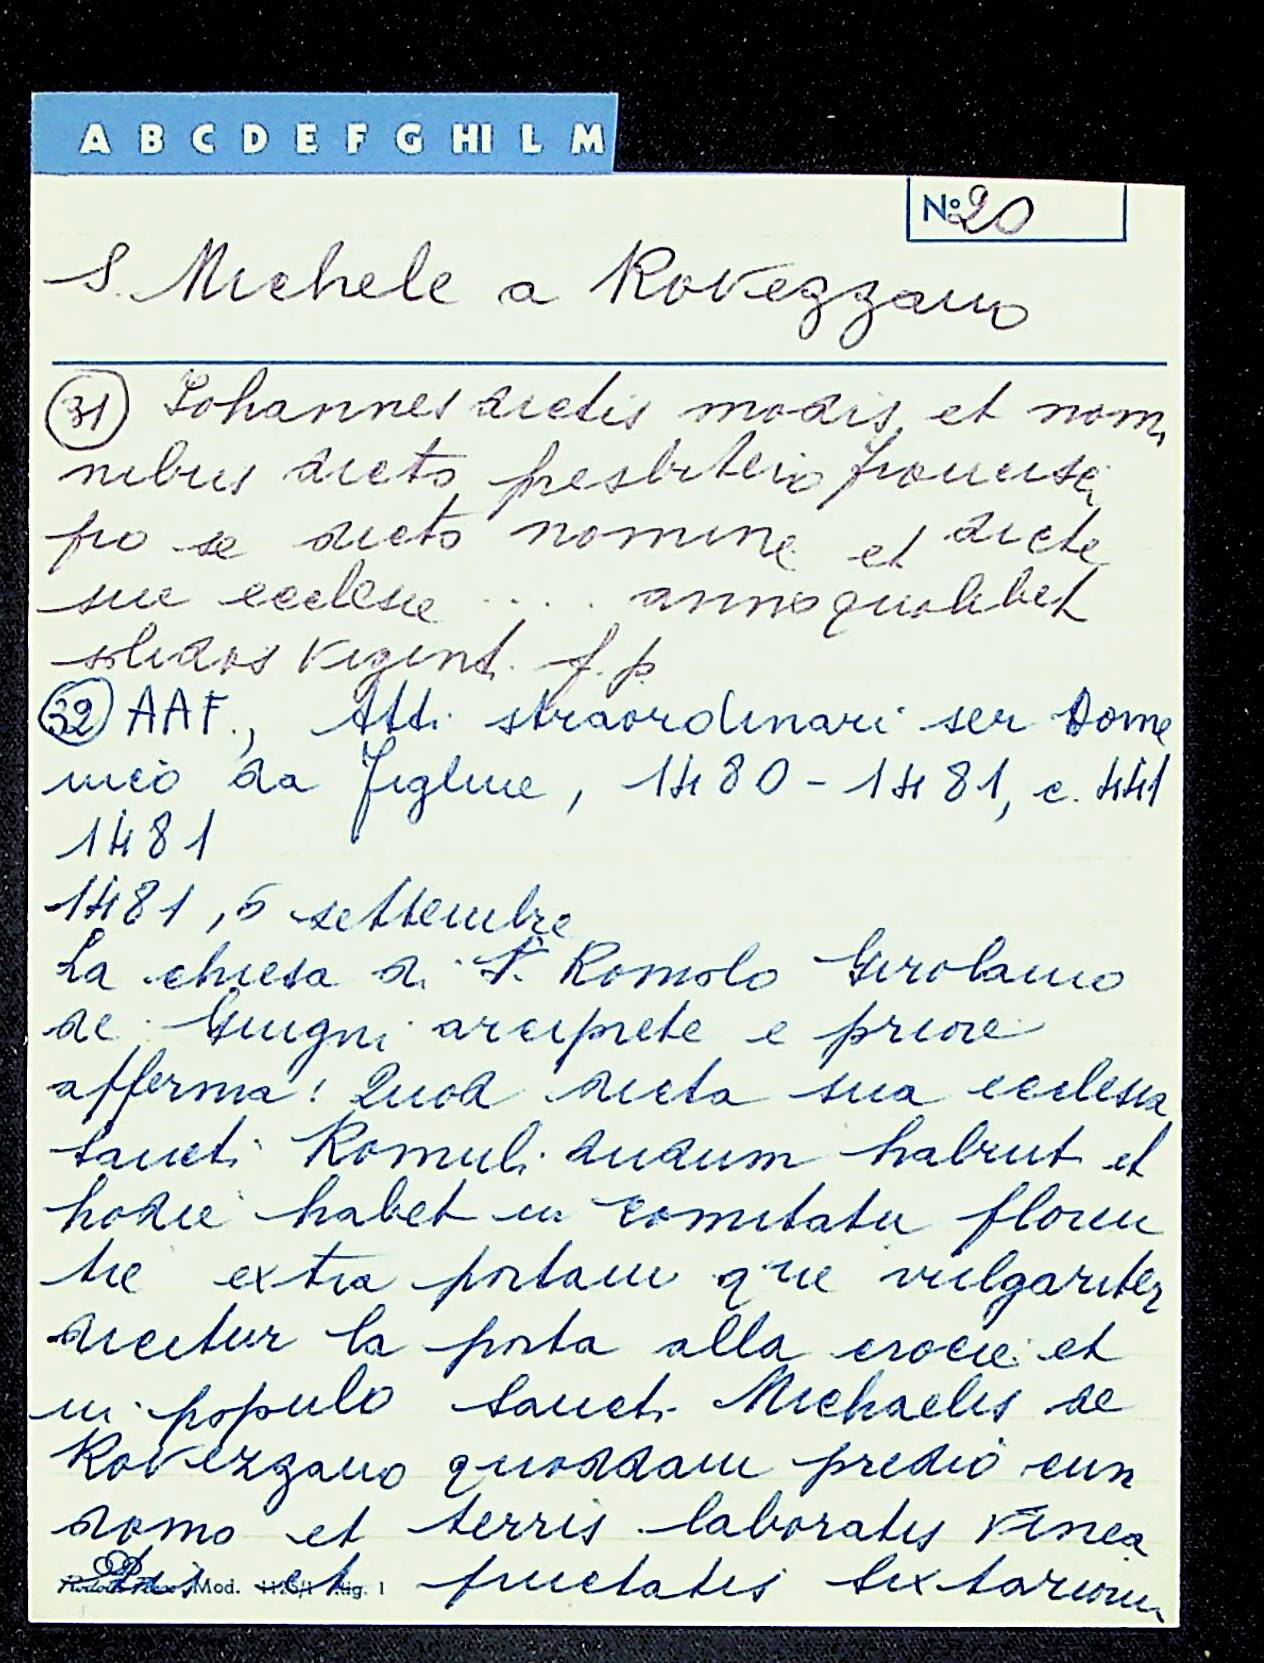 A B C D E F G HI L M
No 20
S. Michele a Rovezzano
31 Iohannes dictis modis et nomi
nibus dicto presbitero Francisci
pro se dicto nomine et dicte
sue ecclesie .... anno quolibet
solidos vigint. f.p.
32 AAF., Atti straordinari ser Dome
nico da Figline, 1480-1481, c. 441
1481
1481, 5 settembre
La chiesa di S. Romolo Girolamo
de Giugni arciprete e priore
afferma: Quod dicta sua ecclesia
Sancti Romuli dudum habuit et
hodie habet in comitatu floren
tie extra portam que vulgariter
dicitur la porta alla croce et
in populo Sancti Michaelis de
Rovezzano quoddam predio cum
domo et terris laboratis vinea
et fructatis sextariorum
Mod. Rig. 1